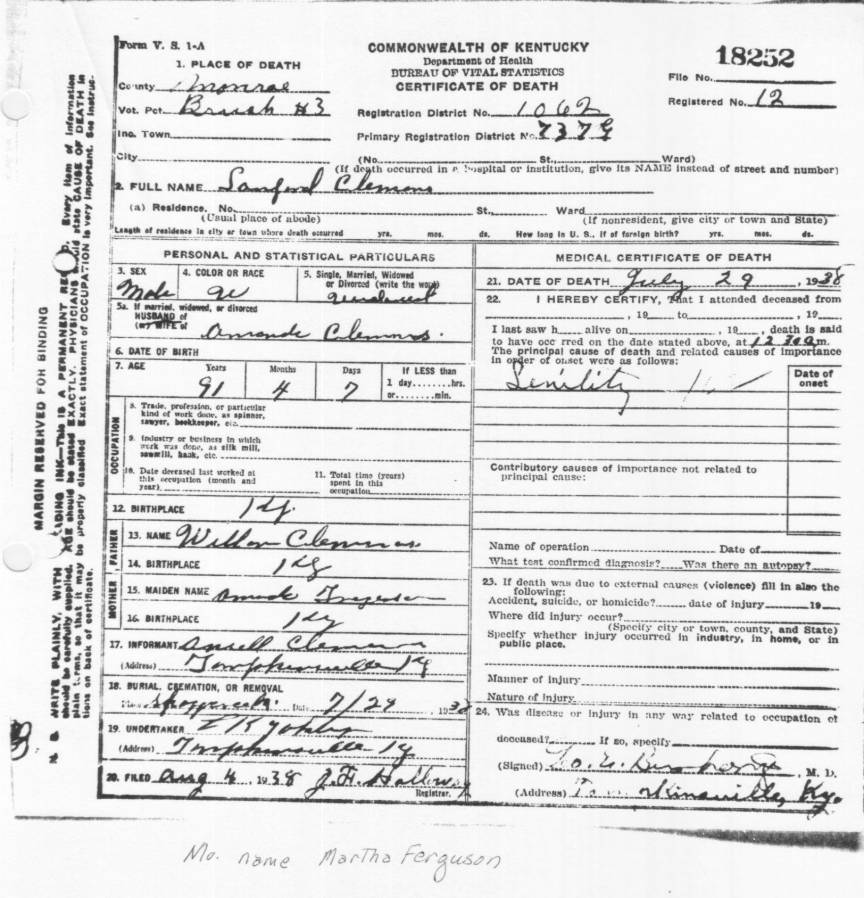 Form V. S. 1-A
COMMONWEALTH OF KENTUCKY
Department of Health
BUREAU OF VITAL STATISTICS
CERTIFICATE OF DEATH
18252
File No.
Registered No. 12
1. PLACE OF DEATH
County Monroe
Vot. Pct. Brush #3
Registration District No. 1062
Inc. Town
Primary Registration District No. 7379
City (No. St., Ward)
(If death occurred in a hospital or institution, give its NAME instead of street and number)
2. FULL NAME Sanford Clemons
(a) Residence. No. St., Ward
(Usual place of abode) (If nonresident, give city or town and State)
Length of residence in city or town where death occurred yrs. mos. ds. How long in U. S., if of foreign birth? yrs. mos. ds.
PERSONAL AND STATISTICAL PARTICULARS
3. SEX 4. COLOR OR RACE 5. Single, Married, Widowed
or Divorced (write the word)
Male W
5a. If married, widowed, or divorced
HUSBAND of
(or) WIFE of Amanda Clemons.
6. DATE OF BIRTH
7. AGE Years Months Days If LESS than
1 day........hrs.
or........min.
91 4 7
OCCUPATION
8. Trade, profession, or particular
kind of work done, as spinner,
sawyer, bookkeeper, etc.
9. Industry or business in which
work was done, as silk mill,
sawmill, bank, etc.
10. Date deceased last worked at
this occupation (month and
year)
11. Total time (years)
spent in this
occupation
12. BIRTHPLACE Ky.
FATHER
13. NAME Clemons
14. BIRTHPLACE Ky
MOTHER
15. MAIDEN NAME
16. BIRTHPLACE Ky
17. INFORMANT Ansell Clemons
(Address) Tompkinsville Ky
18. BURIAL, CREMATION, OR REMOVAL
Date 7/29 1938
19. UNDERTAKER
(Address) Tompkinsville Ky
20. FILED Aug 4 1938 J. F. Holloway
Registrar.
MEDICAL CERTIFICATE OF DEATH
21. DATE OF DEATH July 29, 1938
22. I HEREBY CERTIFY, That I attended deceased from
, 19 to , 19
I last saw h alive on , 19 , death is said
to have occ rred on the date stated above, at 12 30 a m.
The principal cause of death and related causes of importance
in order of onset were as follows:
Date of
onset
Senility
Contributory causes of importance not related to
principal cause:
Name of operation Date of
What test confirmed diagnosis? Was there an autopsy?
23. If death was due to external causes (violence) fill in also the
following:
Accident, suicide, or homicide? date of injury 19
Where did injury occur?
(Specify city or town, county, and State)
Specify whether injury occurred in industry, in home, or in
public place.
Manner of injury
Nature of injury
24. Was disease or injury in any way related to occupation of
deceased? If so, specify
(Signed) M. D.
(Address) Tompkinsville, Ky.
MARGIN RESERVED FOR BINDING
N. B. WRITE PLAINLY, WITH ADING INK—This IS A PERMANENT RE D. Every item of information
should be carefully supplied. AGE should be stated EXACTLY. PHYSICIANS should state CAUSE OF DEATH in
plain terms, so that it may be properly classified. Exact statement of OCCUPATION is very important. See instruc-
tions on back of certificate.
Mo. name Martha Ferguson